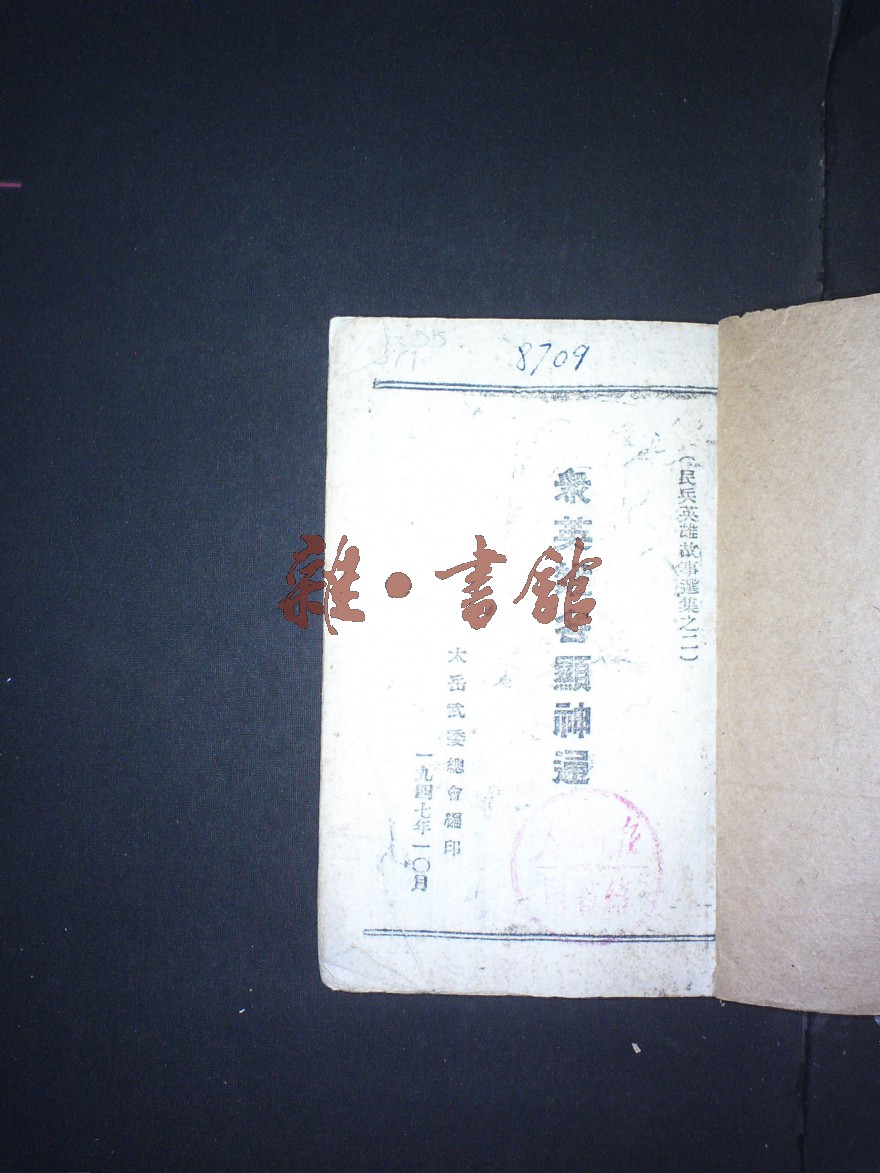 8709
(民兵英雄故事選集之二)
衆英雄各顯神通
太岳武委總會編印
一九四七年一〇月
雜·書館